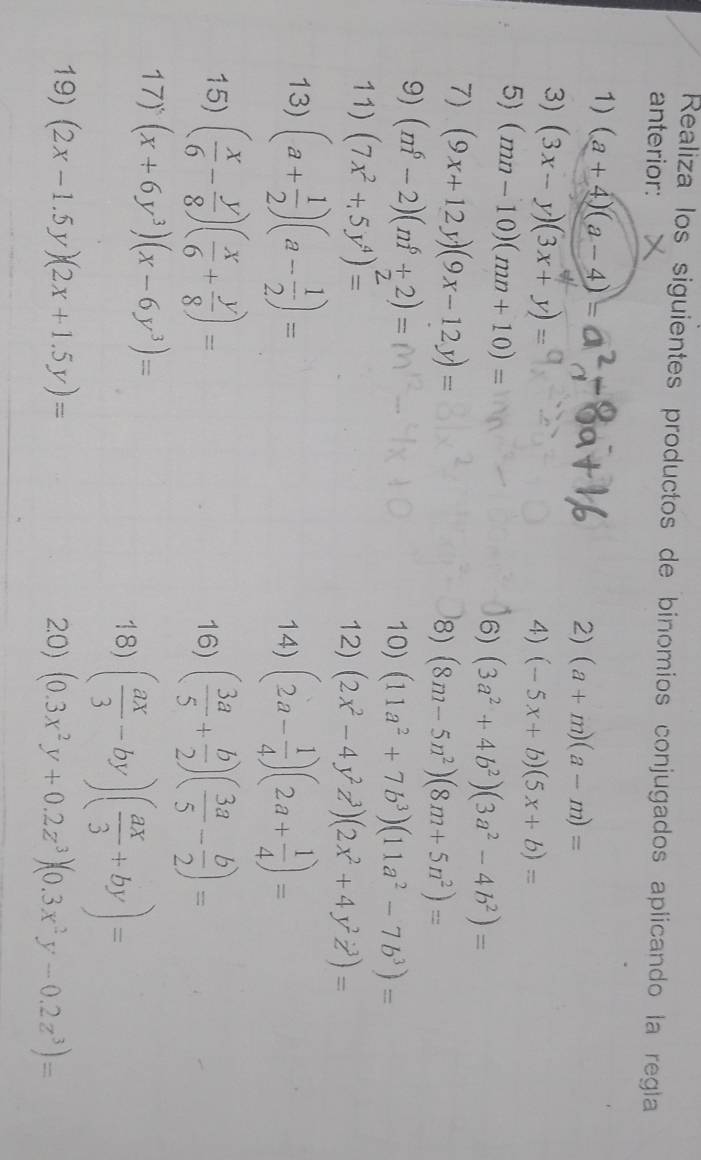 Realiza los siguientes productos de binomios conjugados aplicando la regla
anterior:
1) (a + 4)(a − 4) = a² − 8a + 16
2) (a + m)(a − m) =
3) (3x − y)(3x + y) =
4) (−5x + b)(5x + b) =
5) (mn − 10)(mn + 10) =
6) (3a² + 4b²)(3a² − 4b²) =
7) (9x + 12y)(9x − 12y) =
8) (8m − 5n²)(8m + 5n²) =
9) (m⁶ − 2)(m⁶ + 2) = m¹² − 4x + 0
10) (11a² + 7b³)(11a² − 7b³) =
11) (7x² + 5y⁴)² =
12) (2x² − 4y²z³)(2x² + 4y²z³) =
13) (a + 1/2)(a − 1/2) =
14) (2a − 1/4)(2a + 1/4) =
15) (x/6 − y/8)(x/6 + y/8) =
16) (3a/5 + b/2)(3a/5 − b/2) =
17) (x + 6y³)(x − 6y³) =
18) (ax/3 − by)(ax/3 + by) =
19) (2x − 1.5y)(2x + 1.5y) =
20) (0.3x²y + 0.2z³)(0.3x²y − 0.2z³) =